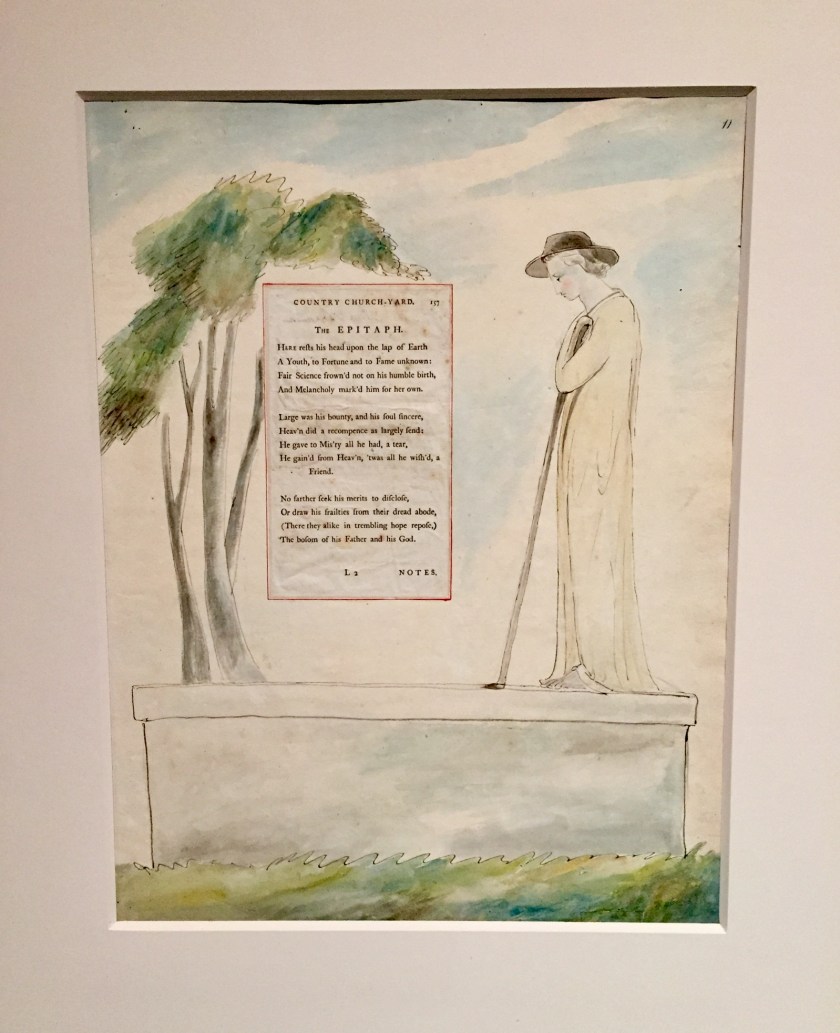 11
COUNTRY CHURCH-YARD. 137
The EPITAPH.
HERE reſts his head upon the lap of Earth
A Youth, to Fortune and to Fame unknown:
Fair Science frown'd not on his humble birth,
And Melancholy mark'd him for her own.
Large was his bounty, and his ſoul ſincere,
Heav'n did a recompence as largely ſend:
He gave to Miſ'ry all he had, a tear,
He gain'd from Heav'n, 'twas all he wiſh'd, a
Friend.
No farther ſeek his merits to diſcloſe,
Or draw his frailties from their dread abode,
(There they alike in trembling hope repoſe,)
The boſom of his Father and his God.
L 2 NOTES.